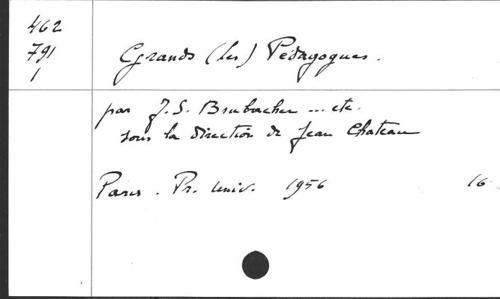 462
791
1
Grands (les) Pédagogues.
par J. S. Brubacher ... etc.
sous la direction de Jean Chateau
Paris. Pr. univ. 1956 16